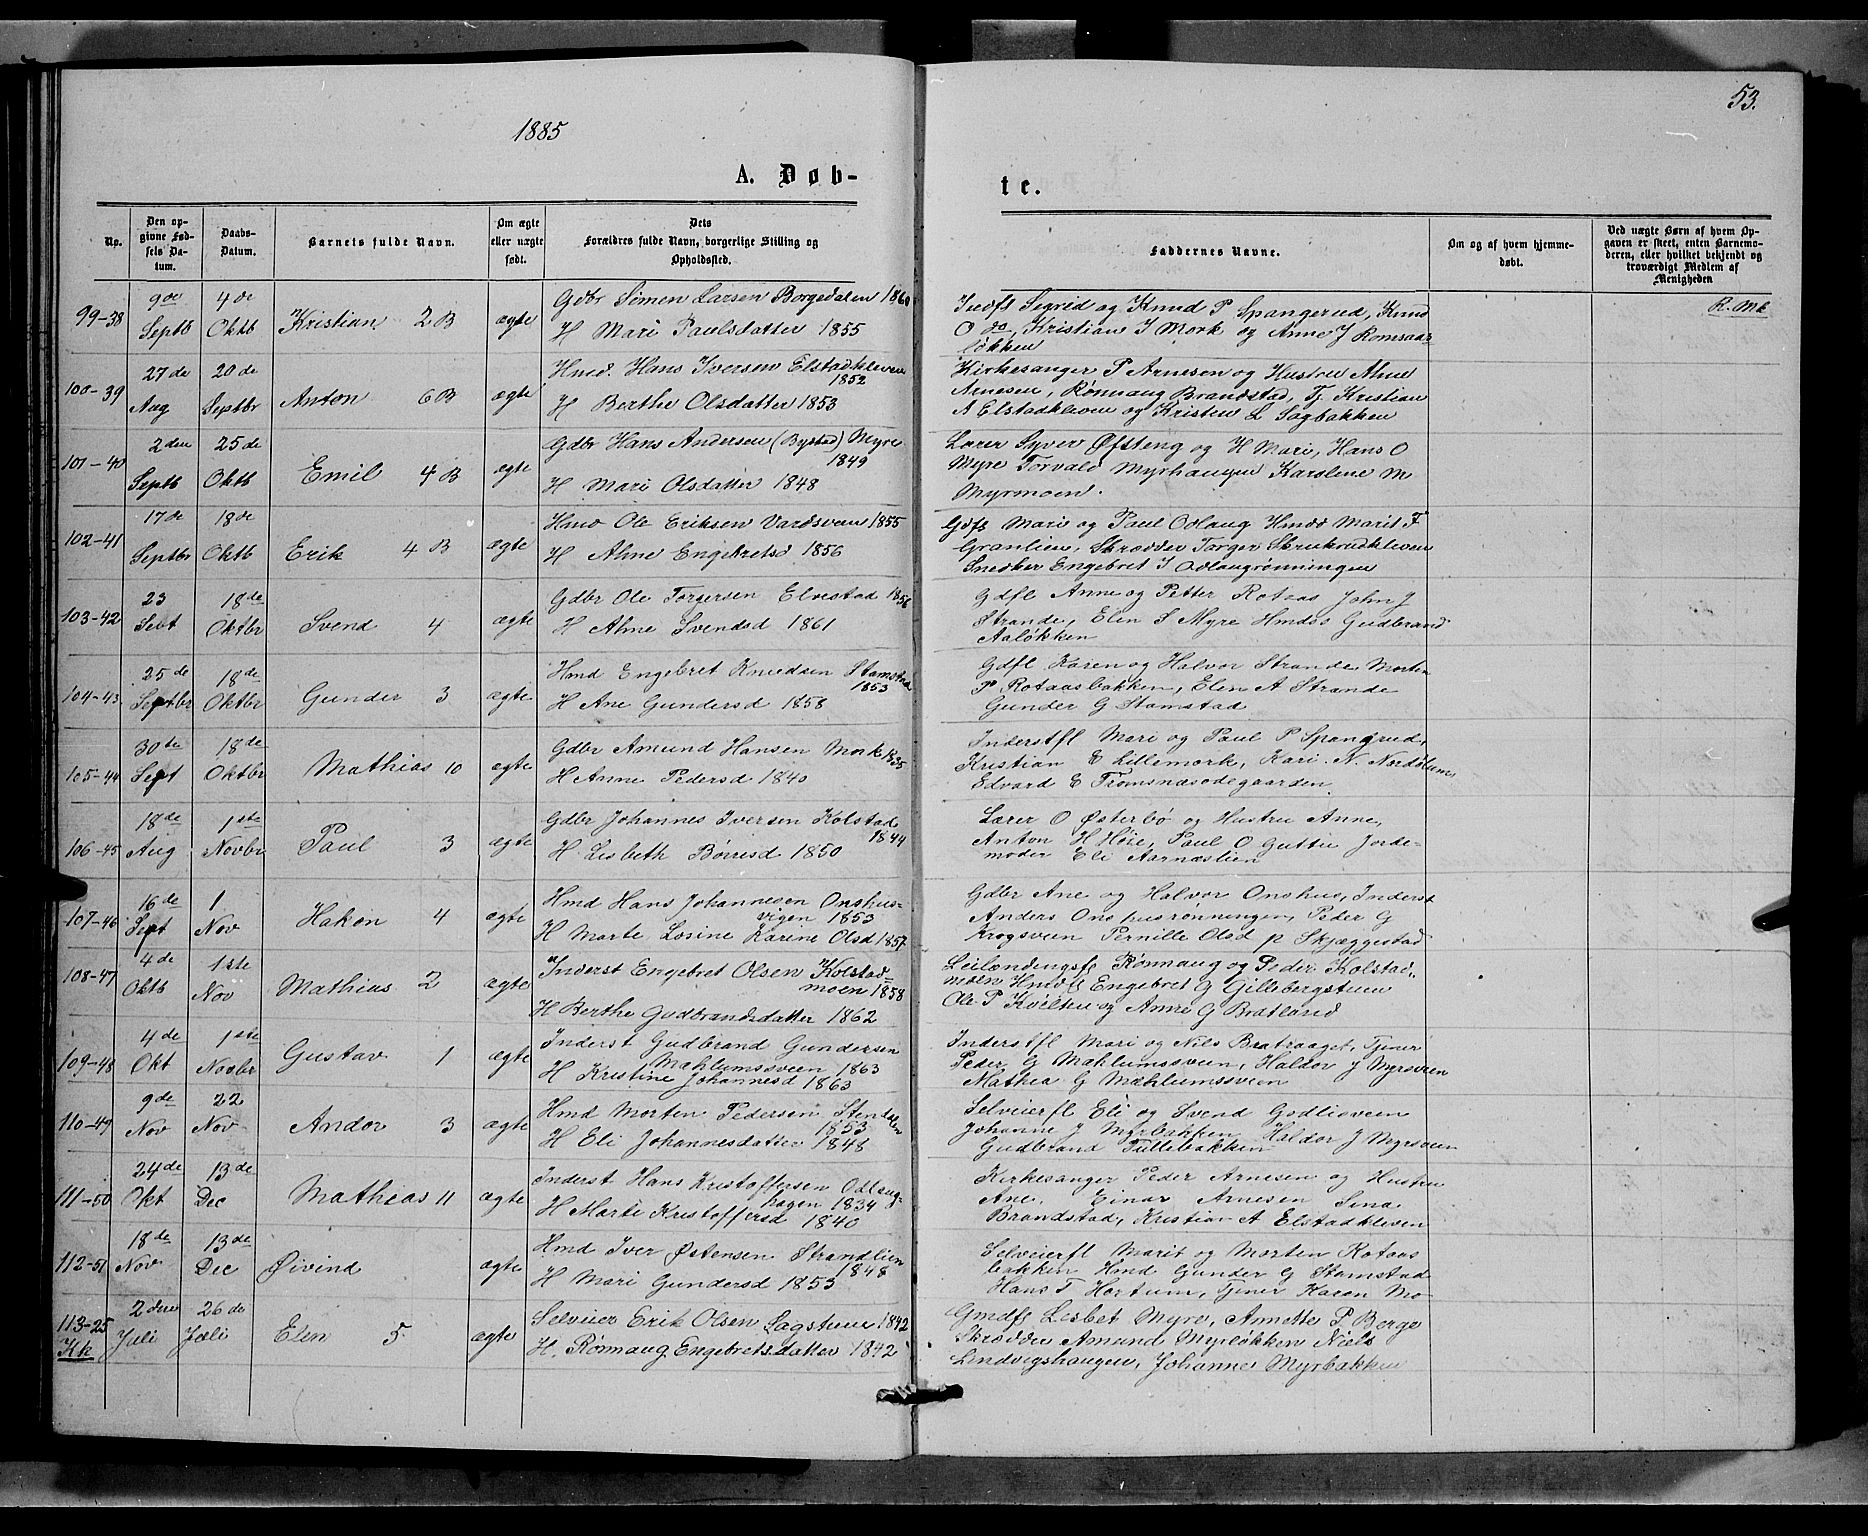 53.
1885
A. Døb-
te.
No.
Den op-
givne Fød-
sels Da-
tum.
Daabs-
Datum.
Barnets fulde Navn.
Om ægte
eller uægte
født.
Dets
Forældres fulde Navn, borgerlige Stilling og
Opholdssted.
Faddernes Navne.
Om og af hvem hjemme-
døbt.
Ved uægte Børn af hvem Op-
gaven er skeet, enten Barnemo-
deren, eller hvilket bekjendt og
troværdigt Medlem af
Menigheden
R. Mk
99-38
Septb
4 de
Oktb
Kristian 2 B
ægte
Gdbr Simen Larsen Borgedalen 1860
H Mari Paulsdatter 1855
Indfl Sigrid og Knud P Spangerud, Knud
O do, Kristian I Mork og Anne J Romsaas-
løkken
100-39
27 de
Aug
20 de
Septbr
Anton 6 B
ægte
Hmd. Hans Iversen Elstadkleven
1852
H Berthe Olsdatter 1853
Kirkesanger P Arnesen og Hustru Alme
Arnesen, Rønnaug Brandstad, Tj Kristian
A Elstadkleven og Kristen L Sagbakken
101-40
2 den
Septb
25 de
Oktb
Emil 4 B
ægte
Gdbr Hans Andersen (Bystad) Myre
1849
H Mari Olsdatter 1848
Lærer Syver Øfsteng og H Mari, Hans O
Myre Torvald Myrhaugen Karoline M
Myrmoen.
102-41
17 de
Septbr
18 de
Oktb
Erik 4 B
ægte
Hmd Ole Eriksen Vardsveen 1855
H Alme Engebretsd 1856
Gdfl Mari og Paul Odlaug Hmds Marit F
Granlien, Skrædder Torger Skrukrudkleven
Snedker Engebret I Odlaugrønningen
103-42
23
Sebt
18 de
Oktbr
Svend 4
ægte
Gdbr Ole Torgersen Elvestad 1856
H Alme Svendsd 1861
Gdfl Anne og Petter Rotaas John J
Strande, Elen S Myre Hmds Gudbrand
Aaløkken
104-43
25 de
Septbr
18 de
Oktbr
Gunder 3
ægte
Hmd Engebret Knudsen Stamstad
1853
H Ane Gundersd 1858
Gdfl Karen og Halvor Strande Morten
P Rotaasbakken, Elen A Strande
Gunder G Stamstad
105-44
30 te
Sept
18 de
Oktbr
Mathias 10
ægte
Gdbr Amund Hansen Mork 1835
H Anne Pedersd 1840
Inderstfl Mari og Paul P Spangrud,
Kristian E Lillemork, Kari N. Nordølum
Edvard E Tromsnæsødegaarden
106-45
18 de
Aug
1 ste
Novbr
Paul 3
ægte
Gdbr Johannes Iversen Kolstad
1844
H Lisbeth Børresd 1850
Lærer O Østerbø og Hustru Anne,
Anton H Høie, Paul O Guttu Jorde-
moder Eli Aarnæslien
107-46
16 de
Sept
1
Nov
Hakon 4
ægte
Hmd Hans Johannesen Onshus-
vigen 1853
H Marte Losine Karine Olsd 1857
Gdbr Ane og Halvor Onshus, Inderst
Anders Onshusrønningen, Peder G
Krogsveen Pernille Olsd p Skjæggestad
108-47
4 de
Oktb
1 ste
Nov
Mathias 2
ægte
Inderst Engebret Olsen Kolstad-
moen 1858
H Berthe Gudbrandsdatter 1862
Leilændingsfl Rønnaug og Peder Kolstad-
moen Hmdfl Engebret G Gillebergstuen
Ole P Kvilten og Anne G Brætlund
109-48
4 de
Okt
1 ste
Novbr
Gustav 1
ægte
Inderst Gudbrand Gundersen
Mæhlumsveen 1863
H Kristine Johannesd 1863
Inderstfl Mari og Nils Bratraaget, Tjener
Peder G Mæhlumsveen, Haldor J Myrsveen
Mathea G Mæhlumsveen
110-49
9 de
Nov
22
Nov
Andor 3
ægte
Hmd Morten Pedersen Stendalen
1853
H Eli Johannesdatter 1848
Selveierfl Eli og Svend Godlisveen
Johanne J Myrbakken Haldor J Myrsveen
Gudbrand Tullebakken
111-50
24 de
Okt
13 de
Dec
Mathias 11
ægte
Inderst Hans Kristoffersen Odlaug-
hagen 1834
H Marte Kristoffersd 1840
Kirkesanger Peder Arnesen og Hustru
Ane, Einar Arnesen Sina
Brandstad, Kristian A Elstadkleven
112-51
18 de
Nov
13 de
Dec
Øivind
ægte
Hmd Iver Østensen Strandlien
1848
H Mari Gundersd 1853
Selveierfl Marit og Morten Rotaas
bakken Hmd Gunder G Stamstad
Hans T Hortum, Tjener Karen Mo
113-25
Kk
2 den
Juli
26 de
Juli
Elen 5
ægte
Selveier Erik Olsen Sagstuen 1842
H. Rønnaug Engebretsdatter 1842
Gmdfl Lisbet Myre, Annette P Berge
Skrædder Amund Myrløkken Niels
Lindvigshaugen, Johannes Myrbakken